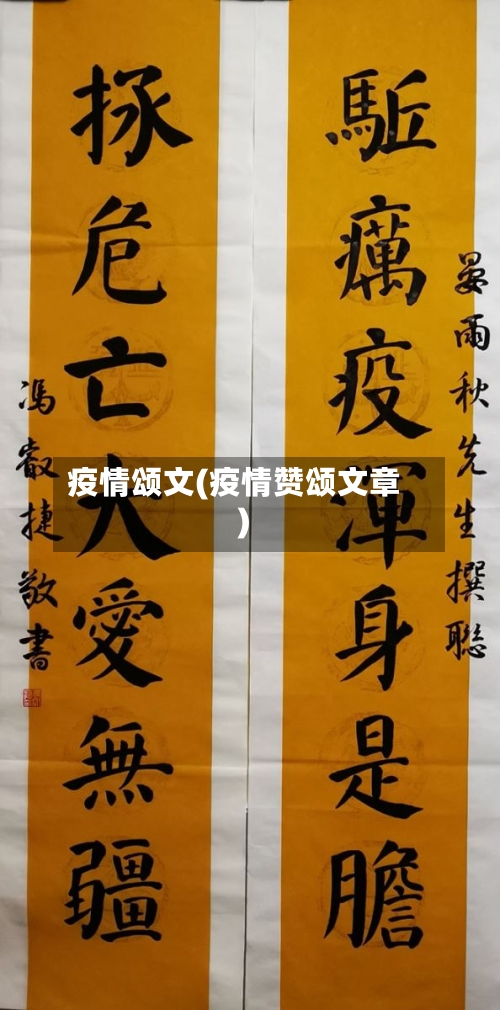 駈癘疫渾身是膽
晏雨秋先生撰聯
拯危亡大愛無疆
馮叡捷敬書
疫情颂文(疫情赞颂文章
)